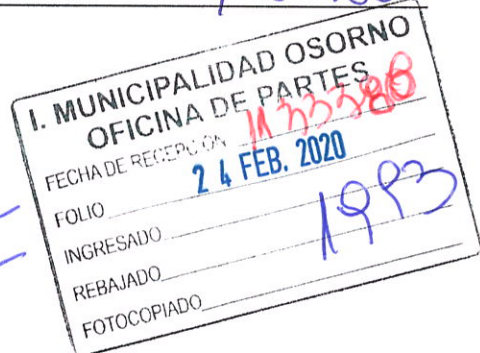 I. MUNICIPALIDAD OSORNO
OFICINA DE PARTES
FECHA DE RECEPCION
24 FEB. 2020
FOLIO
INGRESADO
REBAJADO
FOTOCOPIADO